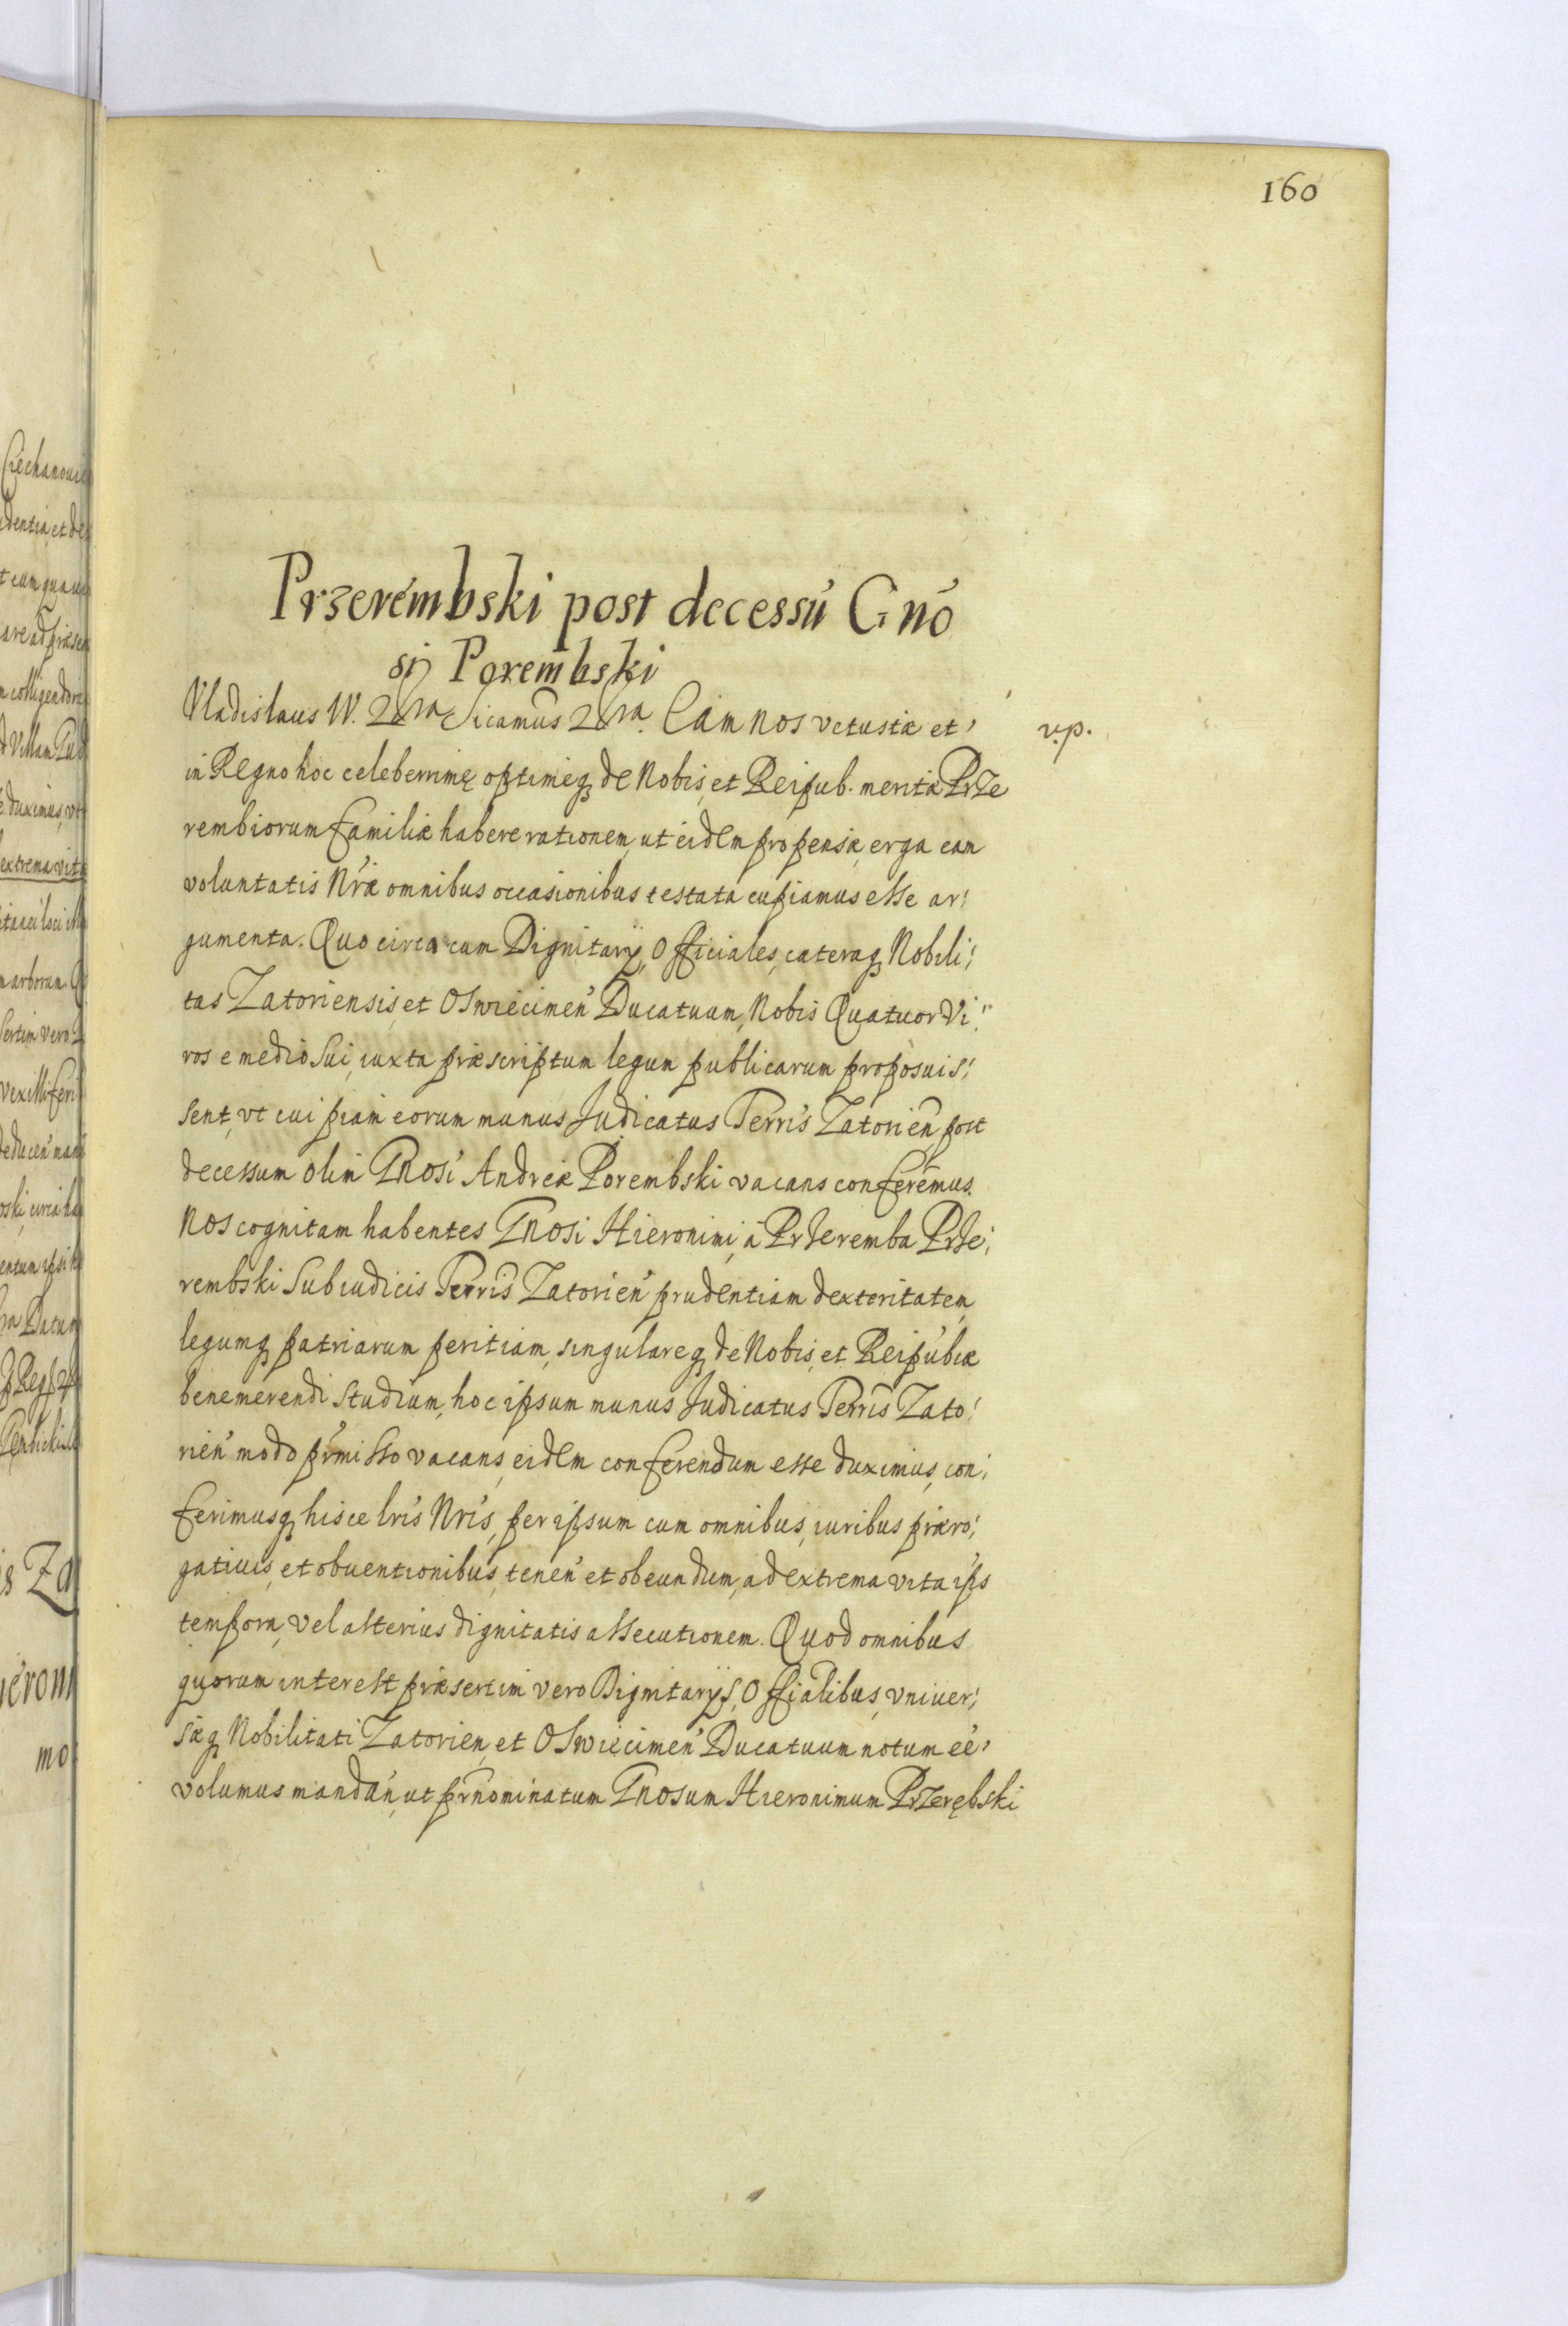 160
Przerembski post decessú Gnó
si Porembski
Vladislaus IV. Sicamus Cum nos vetustæ et
v.p.
in Regno hoc celeberrimę optimeq de Nobis, et Reipub. meritæ Prze
rembiorum familiæ habere rationem, ut eidem propensæ, erga eam
voluntatis Nræ omnibus occasionibus testata cupiamus esse ar:
gumenta. Quo circa cum Dignitarij, Officiales, cæteraq Nobili:
tas Zatoriensis, et Oswiecimen Ducatuum, Nobis Quatuor Vi:
ros e medio Sui, iuxta præscriptum legum publicarum proposuis:
sent, vt cuipiam eorum munus Judicatus Terris Zatorien, post
decessum olim Gnosi Andreæ Porembski vacans conferemus.
Nos cognitam habentes Gnosi Hieronimi, à Przeremba Prze:
rembski Subiudicis Terris Zatorien prudentiam dexteritatem,
legumq patriarum peritiam, singulareq de Nobis, et Reipubiæ
benemerendi studium, hoc ipsum munus Judicatus Terris Zato:
rien modo prmisso vacans, eidem conferendum esse duximus, con:
ferimusq hisce lris Nris, per ipsum cum omnibus, iuribus præro:
gatiuis, et obuentionibus, tenen et obeundum, ad extrema vita ipis
tempora, vel alterius dignitatis assecutionem. Quod omnibus
quorum interest præsertim vero Dignitarijs, Officialibus, vniuer:
sæq Nobilitati Zatorien, et Oswiecimen Ducatuum notum eé
volumus mandan, ut prnominatum Gnosum Hieronimum Przerębski